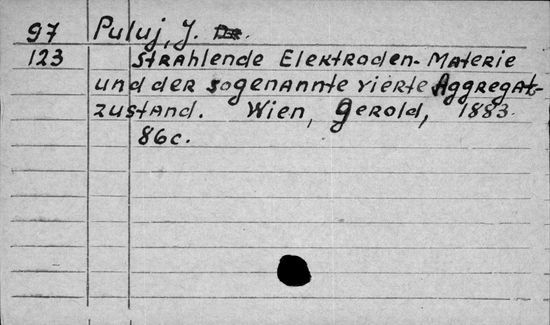 97 Puluj, J.
123 Strahlende Elektroden-Materie
und der sogenannte vierte Aggregat-
zustand. Wien, Gerold, 1883.
86c.